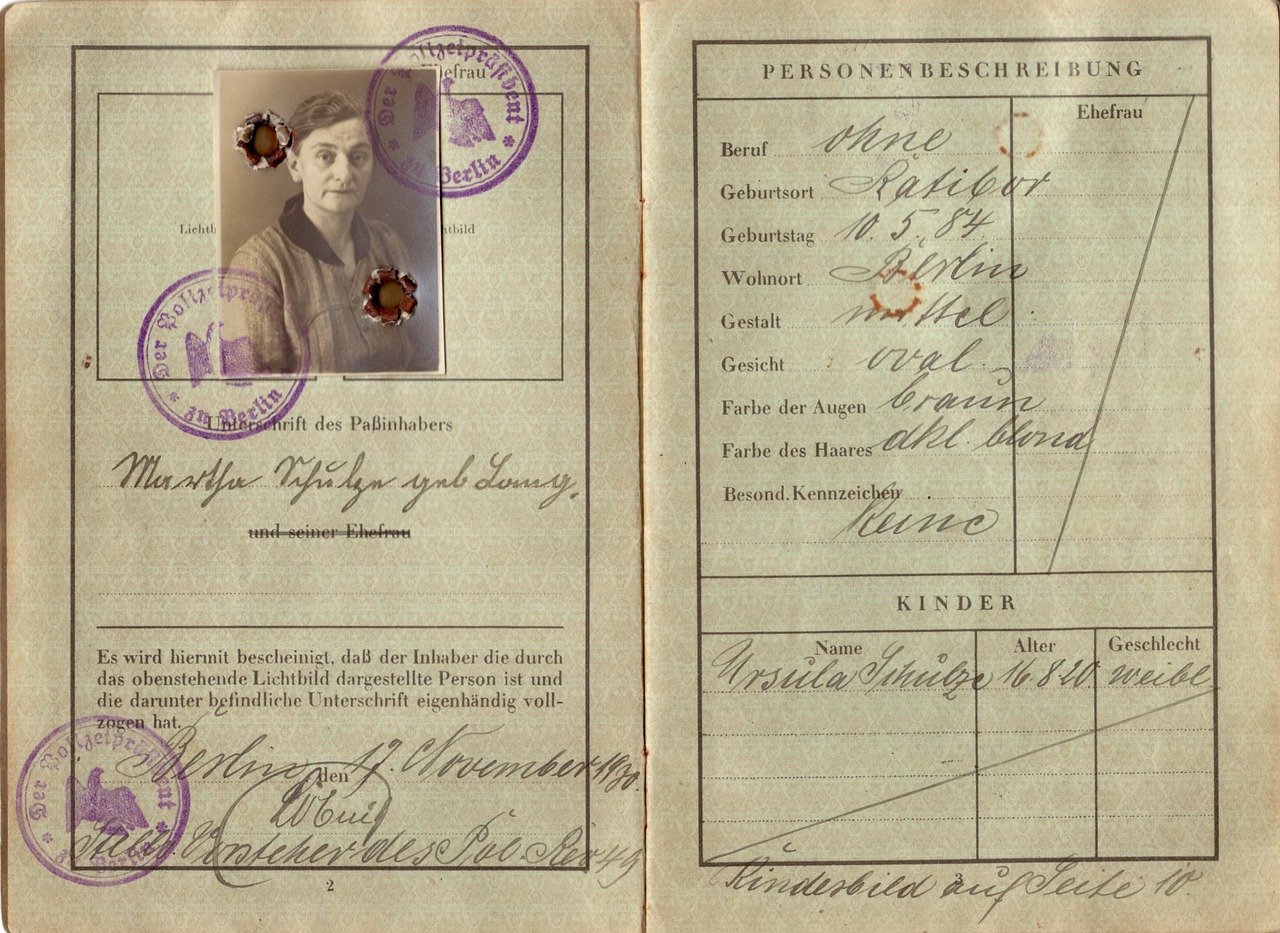 Ehefrau
Lichtb
htbild
Der Polizeipräsident
* zu Berlin *
Der Polizeipräsident
* zu Berlin
Unterschrift des Paßinhabers
Martha Schulze geb Lang.
und seiner Ehefrau
Es wird hiermit bescheinigt, daß der Inhaber die durch
das obenstehende Lichtbild dargestellte Person ist und
die darunter befindliche Unterschrift eigenhändig voll-
zogen hat.
Berlin, den 17. November 1930.
Stellv. Vorsteher des Pol. Rev 49
Der Polizeipräsident
* zu Berlin *
2
PERSONENBESCHREIBUNG
Ehefrau
Beruf ohne
Geburtsort Ratibor
Geburtstag 10. 5. 84
Wohnort Berlin
Gestalt mittel
Gesicht oval
Farbe der Augen braun
Farbe des Haares dkl. blond
Besond. Kennzeichen
Keine
KINDER
Name Alter Geschlecht
Ursula Schulze 16.8.20 weibl.
Kindesbild auf Seite 10.
3